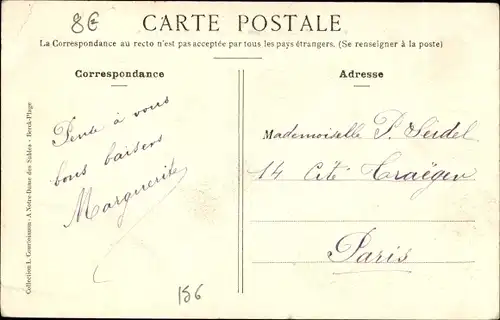 8€
CARTE POSTALE
La Correspondance au recto n'est pas acceptée par tous les pays étrangers. (Se renseigner à la poste)
Correspondance
Pense à vous
bons baisers
Marguerite
Adresse
Mademoiselle P. Seidel
14 Cité
Paris
156
Collection L. Courtoisonn - A Notre-Dame des Sables - Berck-Plage